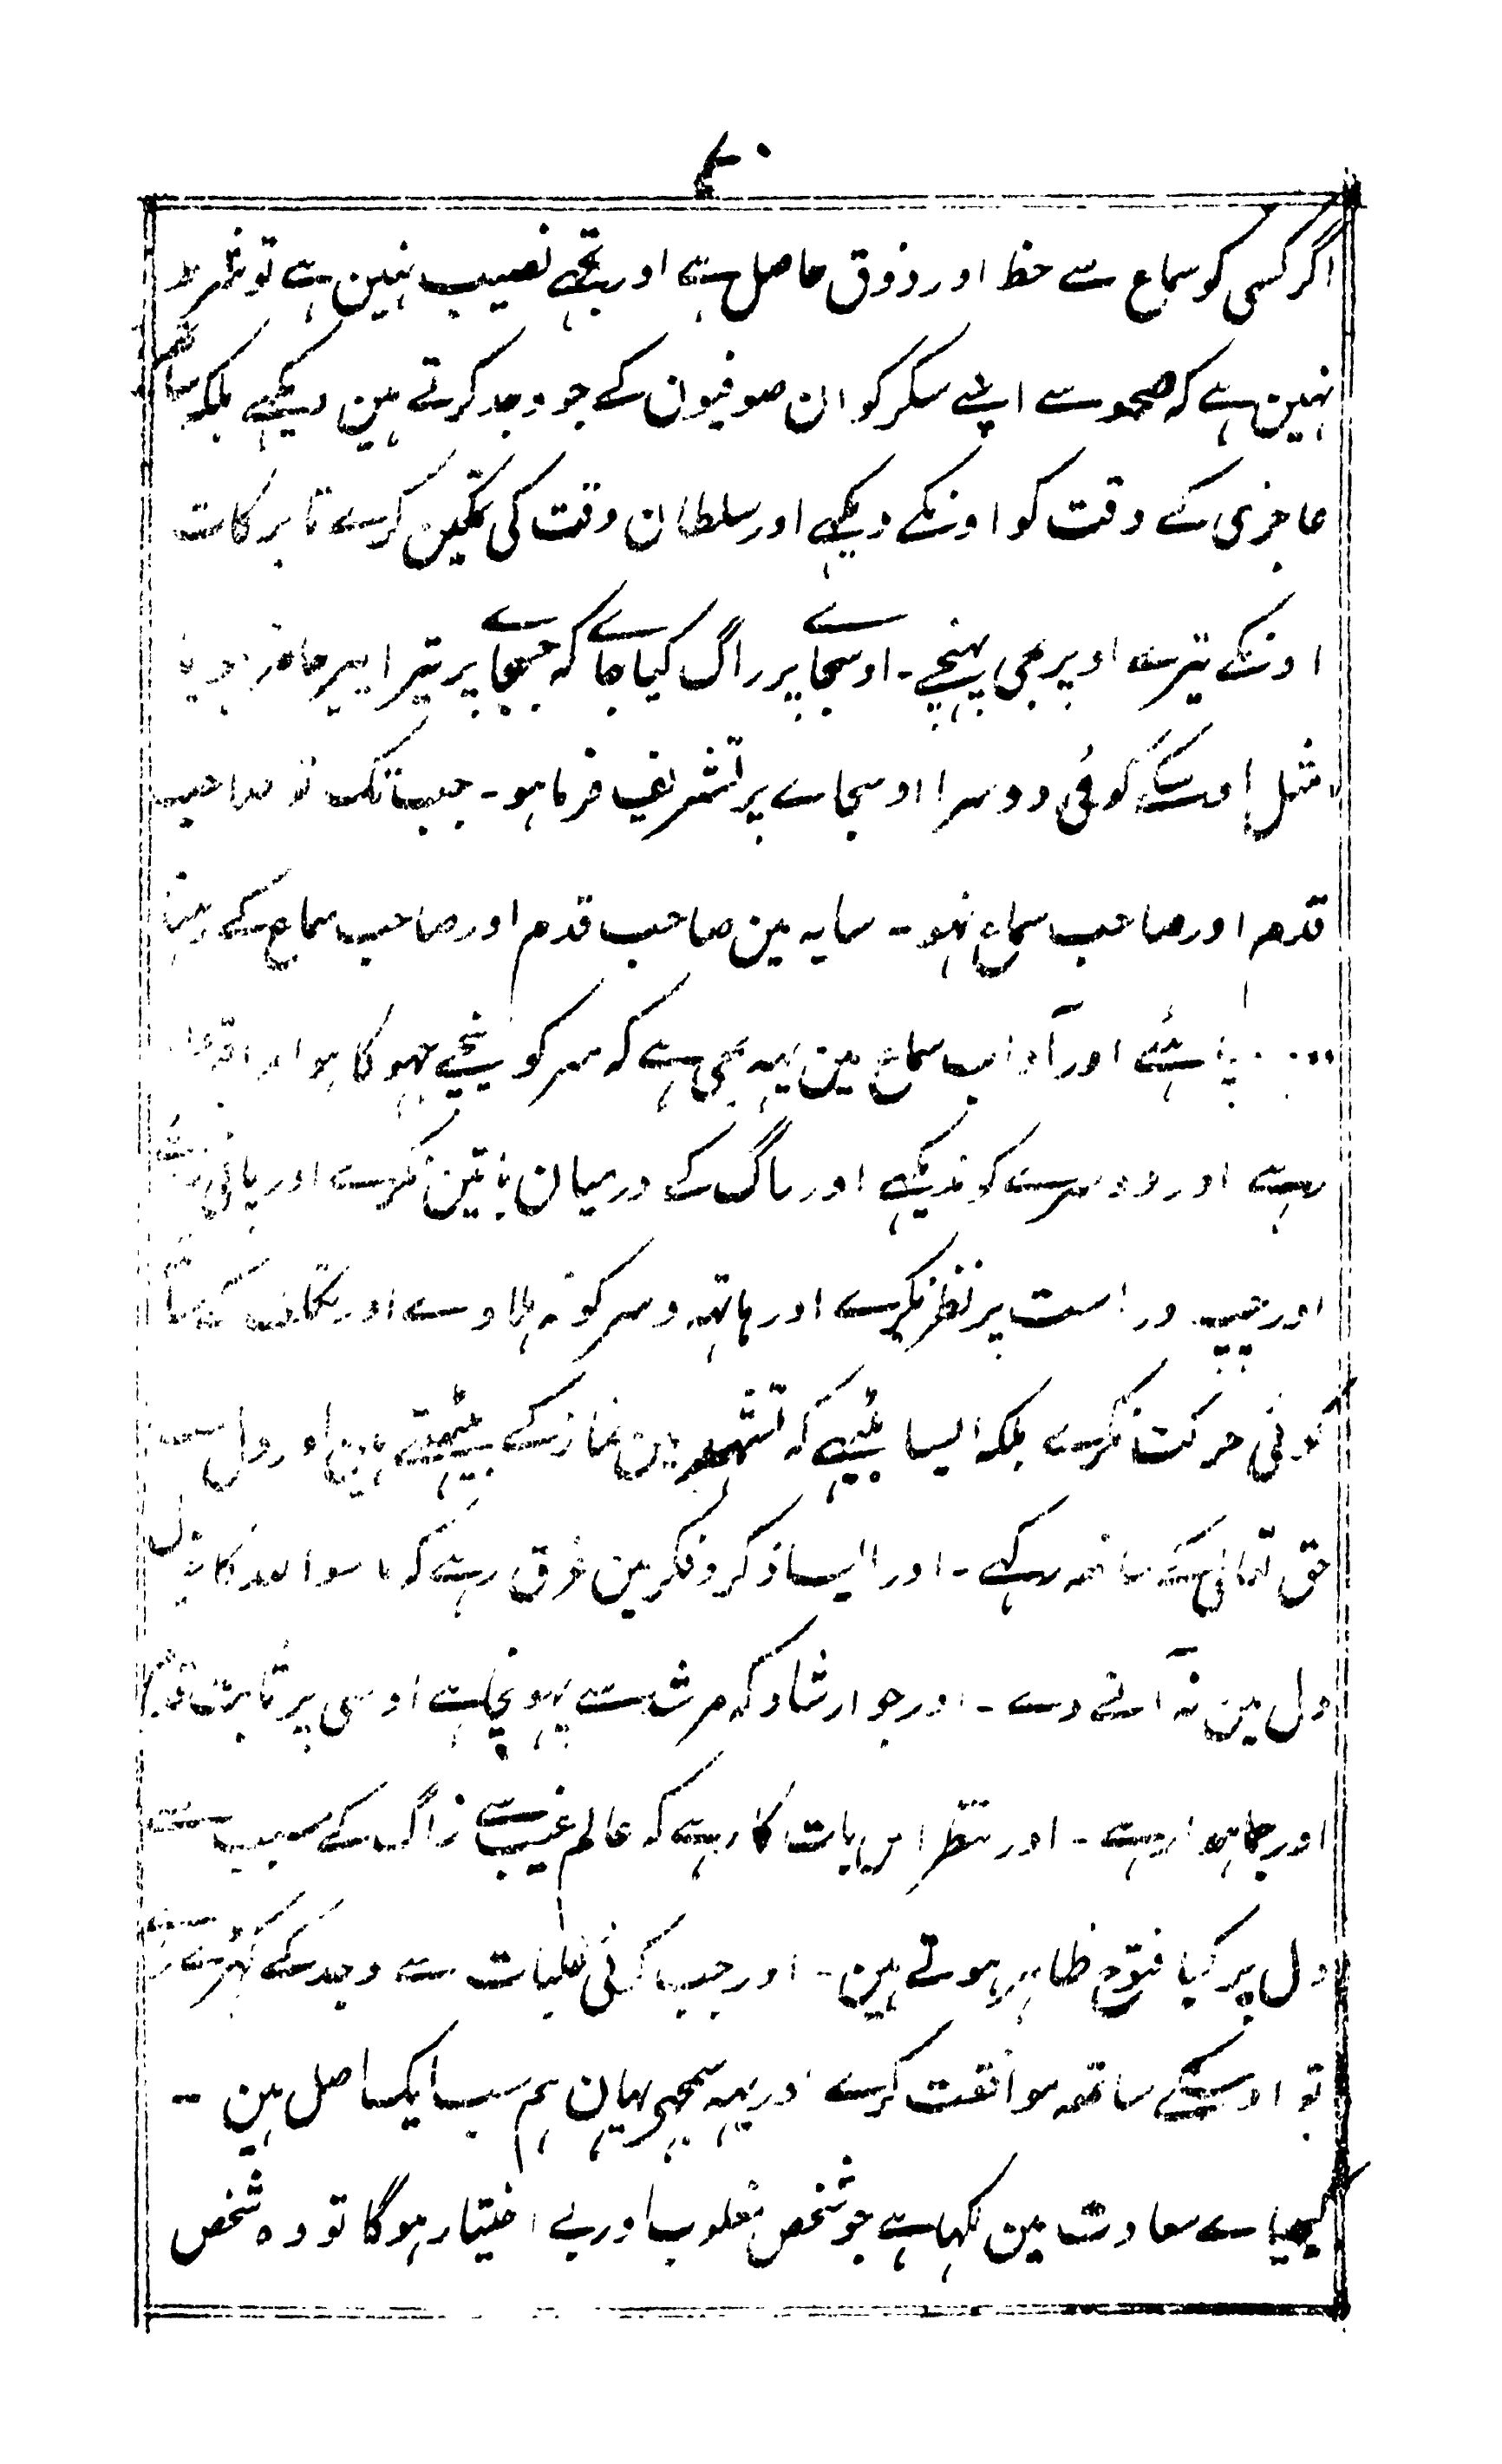 اگر کسی کو سماع سے حظ اور ذوق حاصل ہے اور تجھے نصیب نہین ہے تو
نہین ہے کہ صحو سے اپنے سکر کو ان صوفیون کے جو وجد کرتے ہین دیکھے بلکہ ساتھ
عاجزی کے وقت کو اونکے دیکھے اور سلطان وقت کی تمکین کرے تا برکات
اونکے تیرے اوپر بھی پہنچے - اوسجاے پر راگ کیا جاے کہ جسجاے پر تیرا پیر حاضر ہو یا
مثل اوسکے کوئی دوسرا اوسجاے پر تشریف فرما ہو - جب تک تو صاحب
قدم اور صاحب سماع نہو - سایہ مین صاحب قدم اور صاحب سماع کے رہنا
چاہئے اور آداب سماع مین یہہ بھی ہے کہ سر کو نیچے جہوکا ہوا
رہے اور دوسرے کو ندیکھے اور راگ کے درمیان باتین نکرے اور پانی
اور چپ و راست پر نظر نکرے اور ہاتہہ و سر کو نہ ہلاوے اور تکلف کے ساتھ
کوئی حرکت نکرے بلکہ ایسا بیٹھے کہ تشہد مین نماز کے بیٹھتے ہین اور دل
حق تعالی کے ساتھہ رکھے - اور ایسا ذکر و فکر مین غرق رہے کہ ماسوا اللہ کا
دل مین نہ آنے دے - اور جو ارشاد کہ مرشد سے پہونچا ہے اوسی پر ثابت قدم
اور جما ہوا رہے - اور منتظر اس بات کا رہے کہ عالم غیب سے راگ کے سبب سے
دل پر کیا فتوح ظاہر ہوتے ہین - اور جب کوئی غلبات سے وجد کے کہڑے
تو اوسکے ساتھہ موافقت کرے اور یہہ سمجھے یہان ہم سب ایک اصل ہین -
کیمیاے سعادت مین لکہا ہے جو شخص مغلوب اور بے اختیار ہوگا تو وہ شخص